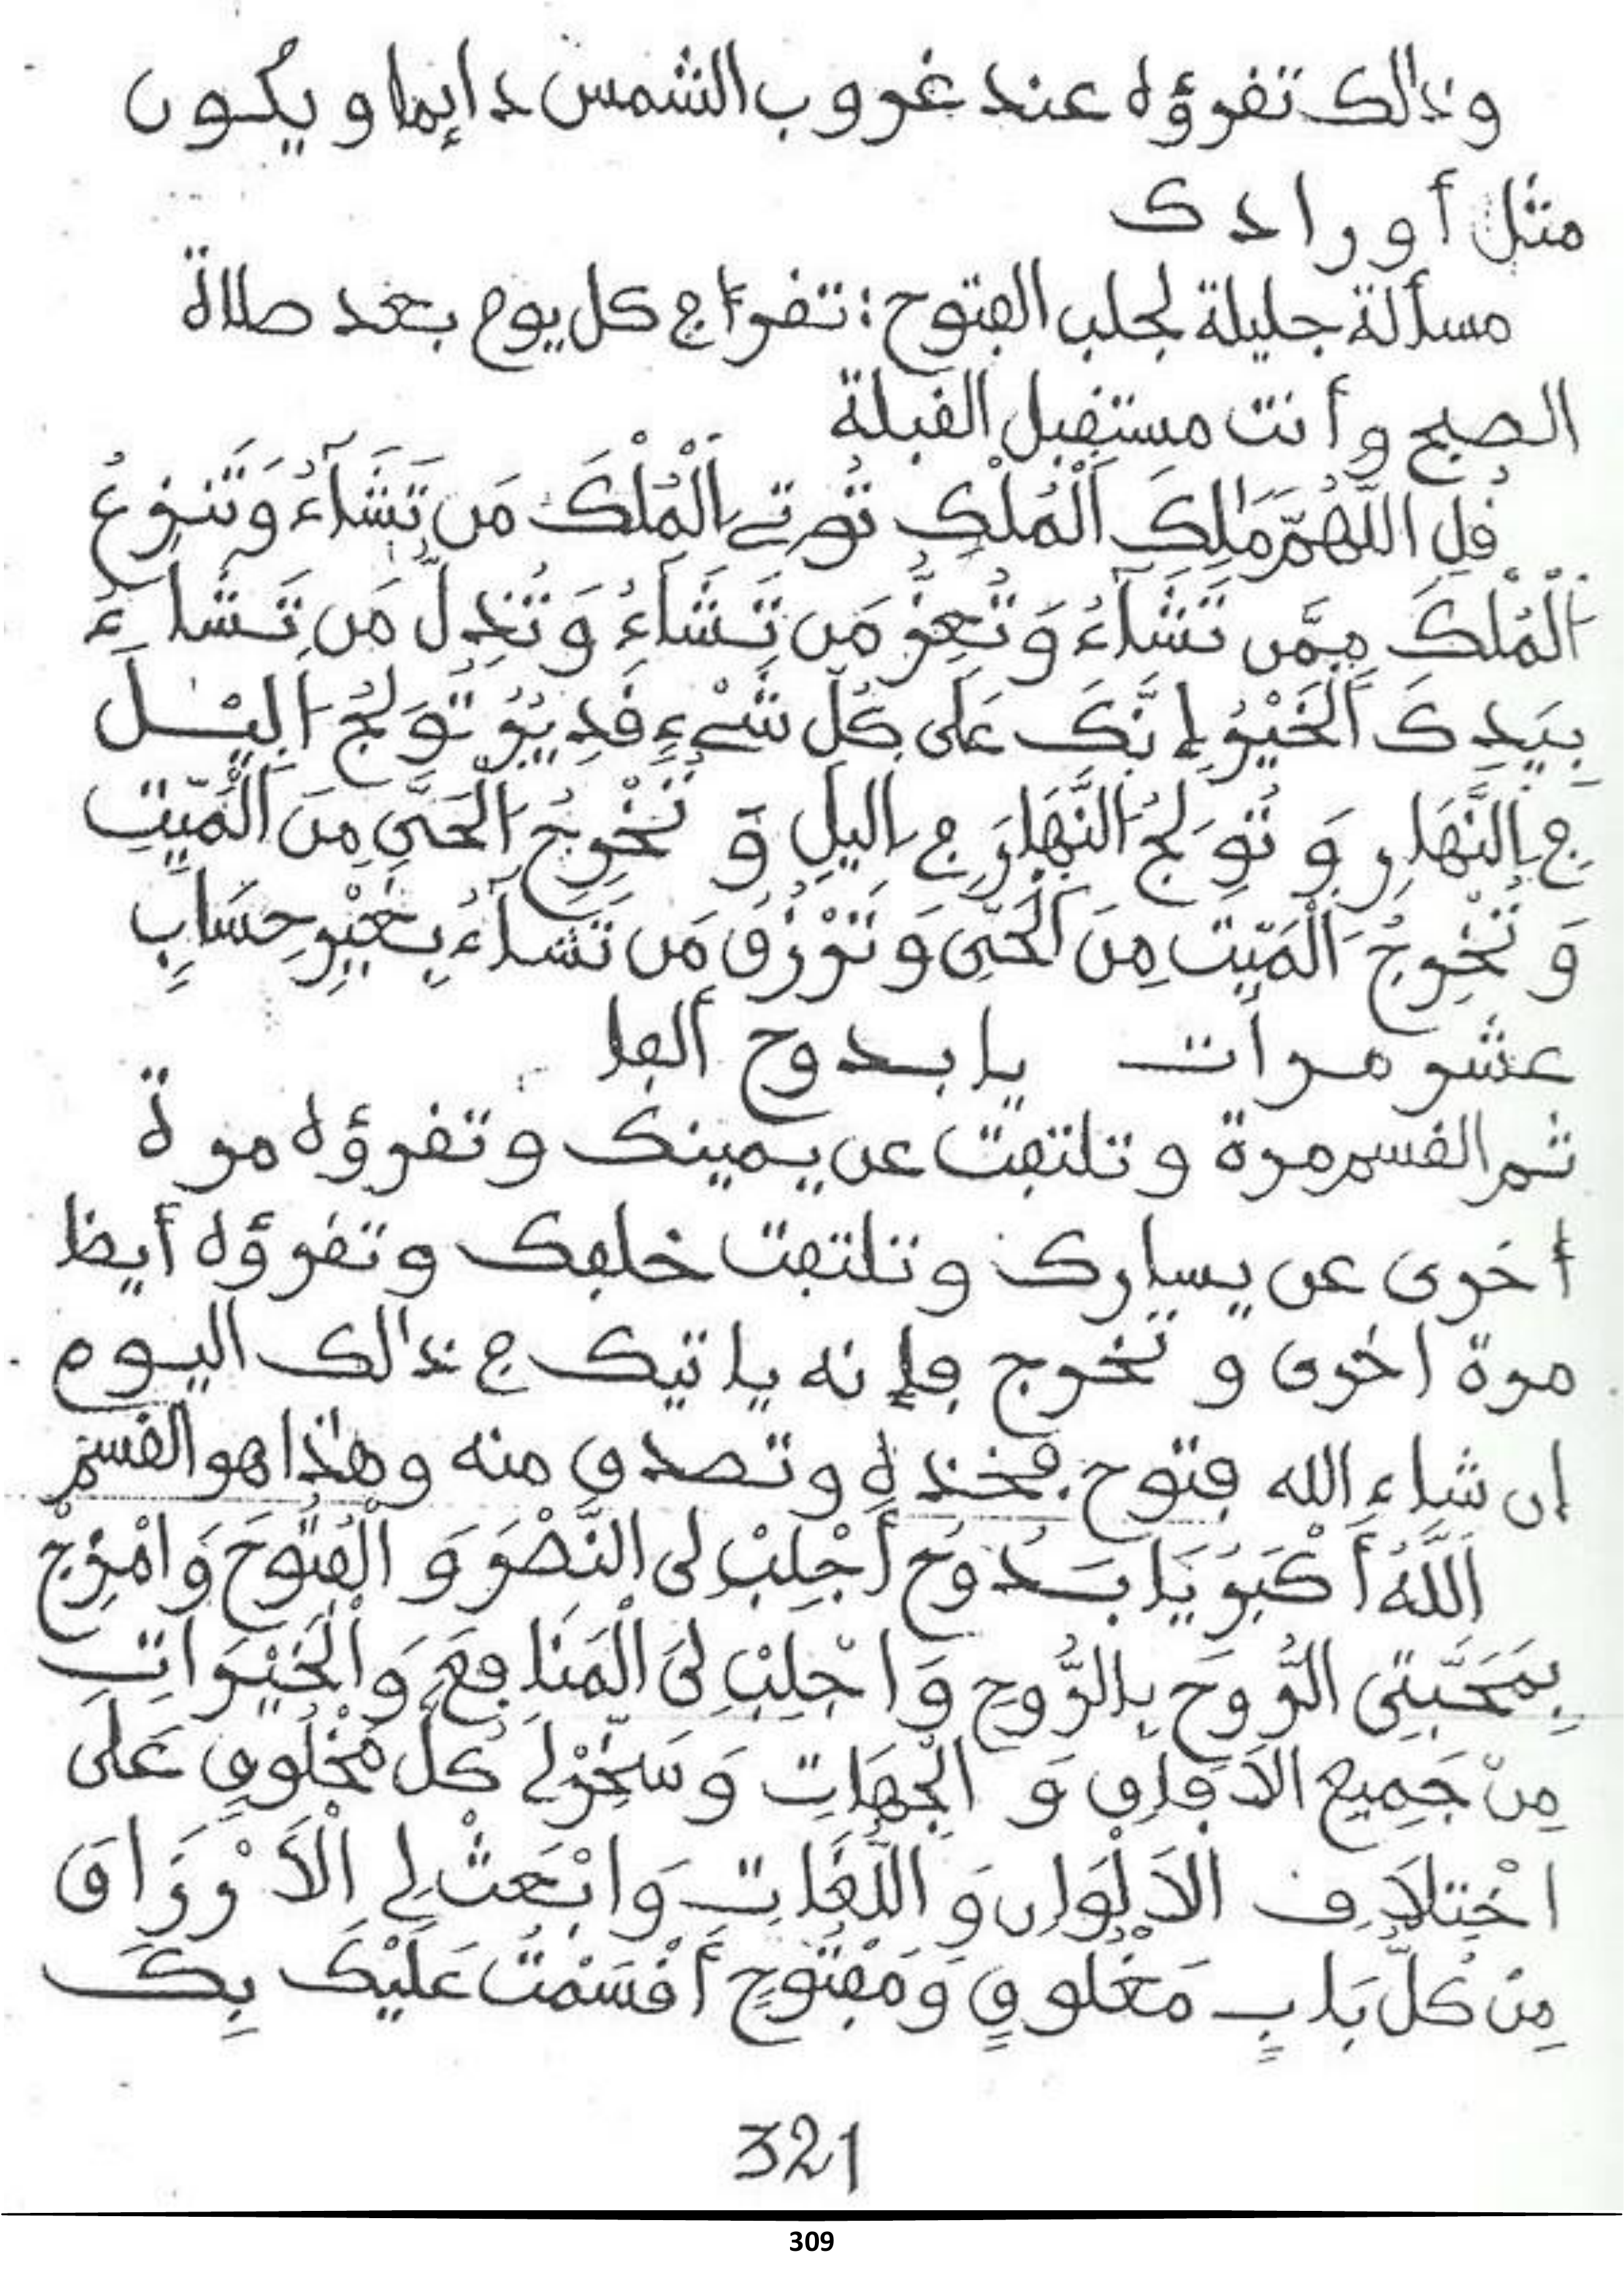 وذالك تفرؤه عند غروب الشمس دايما ويكون
مثل أورادك
مسألة جليلة لجلب الفتوح: تقرأ في كل يوم بعد صلاة
الصبح وأنت مستقبل القبلة
فُلِ اللَّهُمَّ مَٰلِكَ اَلْمُلْكِ تُوتِے اِلْمُلْكَ مَن تَشَآءُ وَتَنزِعُ
اَلْمُلْكَ مِمَّن تَشَآءُ وَتُعِزُّ مَن تَشَآءُ وَتُذِلُّ مَن تَشَاءُ
بِيَدِكَ اَلْخَيْرُ إِنَّكَ عَلَى كُلِّ شَےْءٍ قَدِيرٌ تُولِجُ اَليْلَ
فِي اِلنَّهَارِ وَتُولِجُ اُلنَّهَارَ فِي اِليلِ وَتُخْرِجُ اَلْحَيَّ مِنَ اَلْمَيِّتِ
وَتُخْرِجُ اَلْمَيِّتَ مِنَ اَلْحَيِّ وَتَرْزُقُ مَن تَشَآءُ بِغَيْرِ حِسَابٍ
عشر مرات يا بدوح ألفا
ثم القسم مرة وتلتفت عن يمينك وتقرؤه مرة
أخرى عن يسارك وتلتفت خلفك وتقرؤه أيظا
مرة اخرى وتخرج فإنه ياتيك في ذالك اليوم
إن شاء الله فتوح. فخذه وتصدق منه وهٰذا هو القسم
اَللَّهُ أَكْبَرُ يَا بَدُوحُ أَجْلِبْ لِى النَّصْرَ وَ الْفُتُوحَ وَامْزِجْ
بِمَحَبَّتِى الرُّوحَ بِالرُّوحِ وَاجْلِبْ لِىَ الْمَنَافِعَ وَالْخَيْرَاتِ
مِنْ جَمِيعِ الاَفَاقِ وَ الْجِهَاتِ وَسَخِّرْ لِے كُلَّ مَخْلُوقٍ عَلَى
اخْتِلاَفِ الاَلْوَانِ وَ اللُّغَاتِ وَابْعَثْ لِے الْاَرْزَاقَ
مِنْ كُلِّ بَابٍ مَغْلُوقٍ وَمَفْتُوحٍ أَقْسَمْتُ عَلَيْكَ بِكَ
321
309